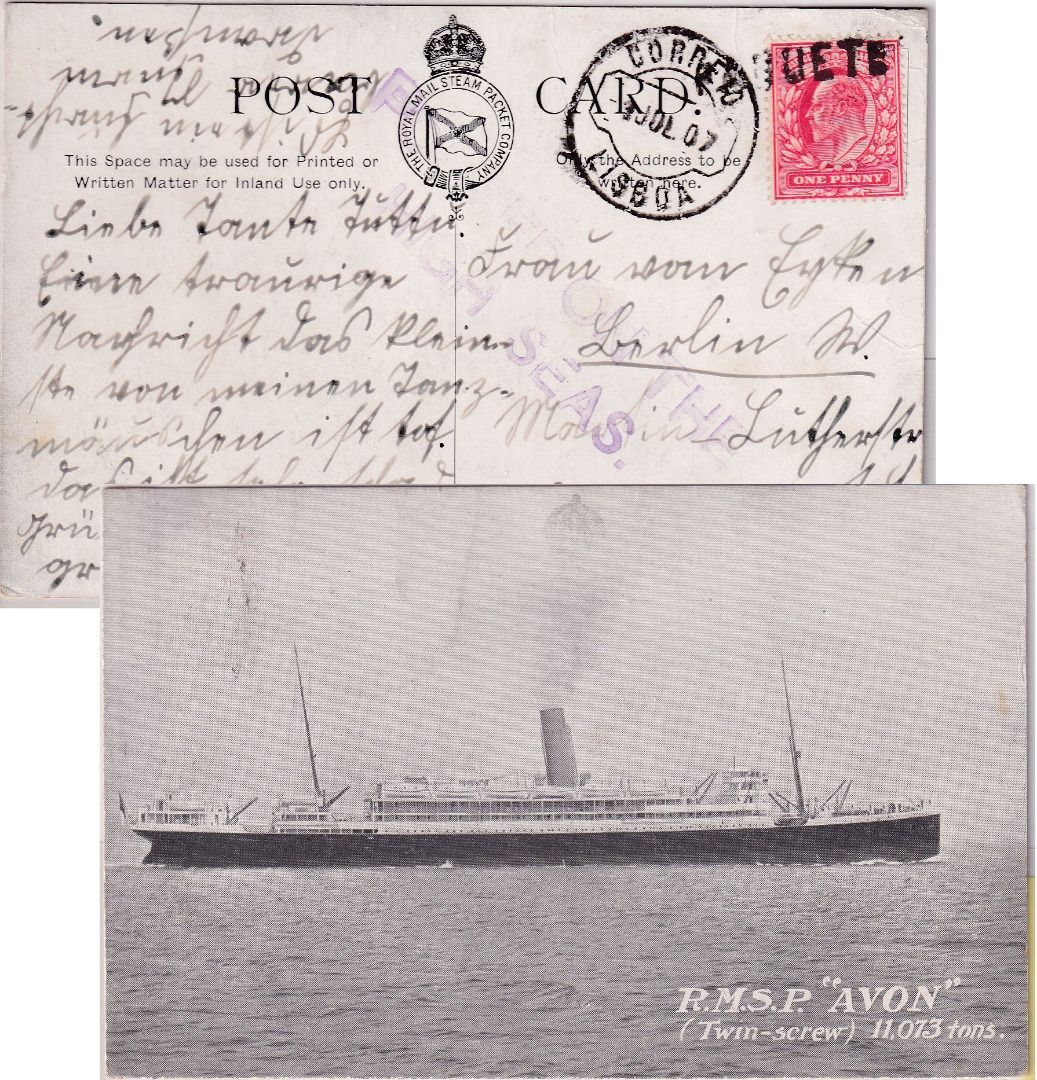 POST CARD.
THE ROYAL MAIL STEAM PACKET COMPANY
This Space may be used for Printed or
Written Matter for Inland Use only.
Only the Address to be
written here.
CORREIO
JUL 07
LISBOA
UETB
ONE PENNY
FROM THE
HIGH SEAS.
Liebe Tante Tutta.
Eine traurige
Nachricht das klein-
ste von meinen Tanz-
mäuschen ist tot.
das ist sehr schad
Grü
gr
Frau vom Eyken
Berlin W.
Martin Lutherstr
R.M.S.P. "AVON"
(Twin-screw) 11,073 tons.